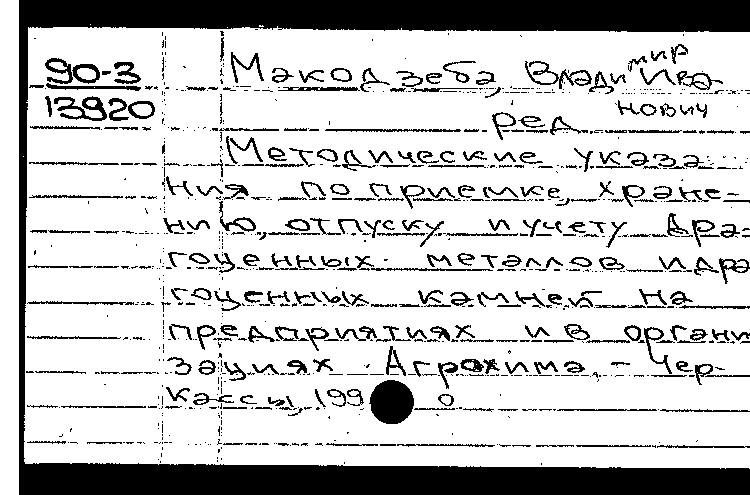 90-3
13920
Макодзеба, Владимир Ива-
нович
ред.
Методические указа
ния по приемке, хране-
нию, отпуску и учету дра-
гоценных металлов и дра
гоценных камней на
предприятиях и в органи
зациях Агрохима. - Чер-
кассы, 1990